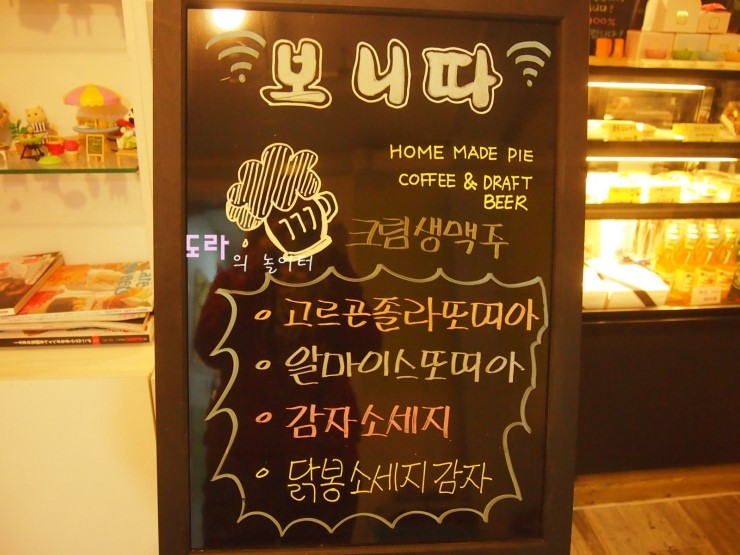 보니따
HOME MADE PIE
COFFEE & DRAFT
BEER
크림생맥주
도라
의 놀이터
고르곤졸라또띠아
알마이스또띠아
감자소세지
닭봉소세지감자